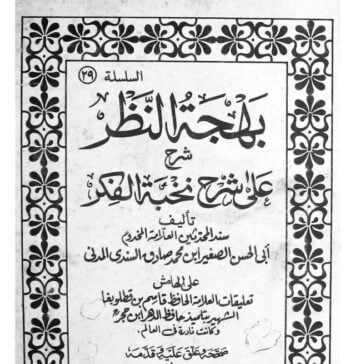 السلسلة (٢٩)
بهجة النظر
شرح
على شرح نخبة الفكر
تأليف
سند المحدثين العلامة المخدوم
أبي الحسن الصغير ابن محمد صادق السندي المدني
على الهامش
تعليقات العلامة الحافظ قاسم بن قطلوبغا
الشهير بتلميذ حافظ الدهر ابن حجر
وكانت نادرة في العالم.
صححه وعلق عليه وقدمه